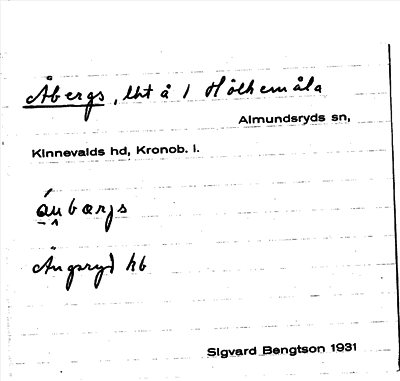 Åbergs, lht å 1 Hölkemåla
Almundsryds sn,
Kinnevalds hd, Kronob. l.
áu bærjs
Ängsryd hb
Sigvard Bengtson 1931